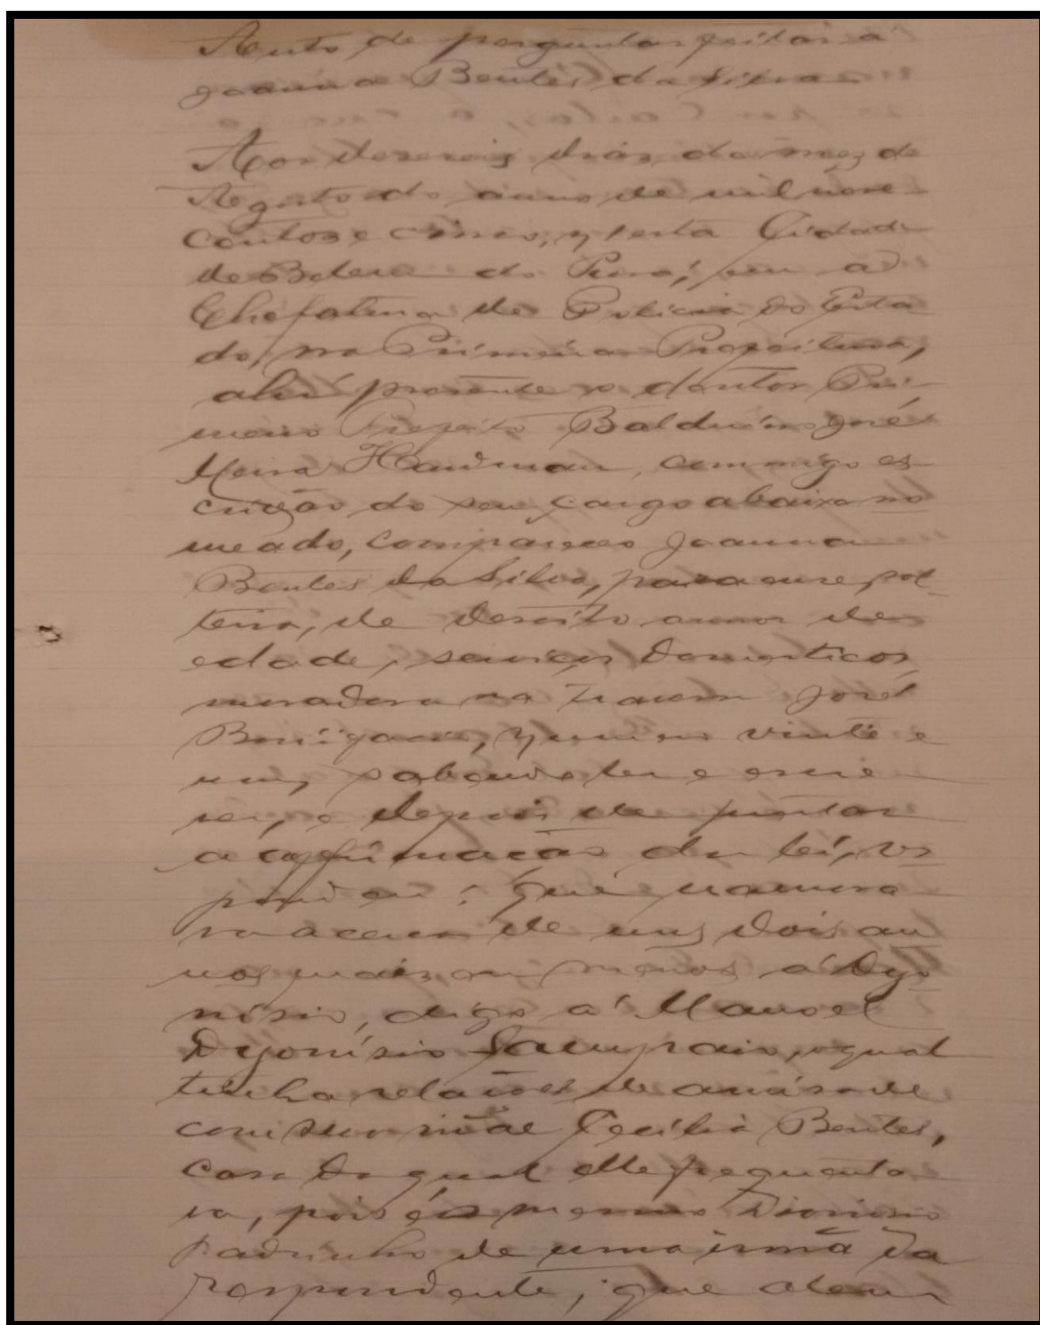 Auto de perguntas feitas á
Joanna Bentes da Silva
Aos deseseis dias do mez de
Agosto do anno de mil nove
centos e cinco, n'esta Cidade
de Belem do Pará, em a
Chefatura de Policia do Esta
do, na Primeira Prefeitura,
ahi presente o doutor Pri-
meiro Prefeito Balduino José
Meira Hardman, commigo es-
crivão do seu cargo abaixo no
meado, compareceo Joanna
Bentes da Silva, paraense, sol
teira, de desoito annos de
edade, serviços domesticos
moradora a Travessa José
Bonifacio, numero vinte e
um, sabendo ler e escre
ver, e depois de prestar
a affirmação da lei, res
pondeu: que namora
va a cerca de uns dois an
nos mais ou menos á Dyo
nisio, digo á Manoel
Dyonisio Sampaio, o qual
tinha relações de amisade
com sua mãe Cecilia Bentes,
casa da qual elle frequenta
va, pois é o mesmo Dionisio
padrinho de uma irmã da
respondente; que alem